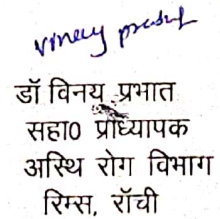 vinay prabhat
डॉ विनय प्रभात
सहा0 प्राध्यापक
अस्थि रोग विभाग
रिम्स, राँची